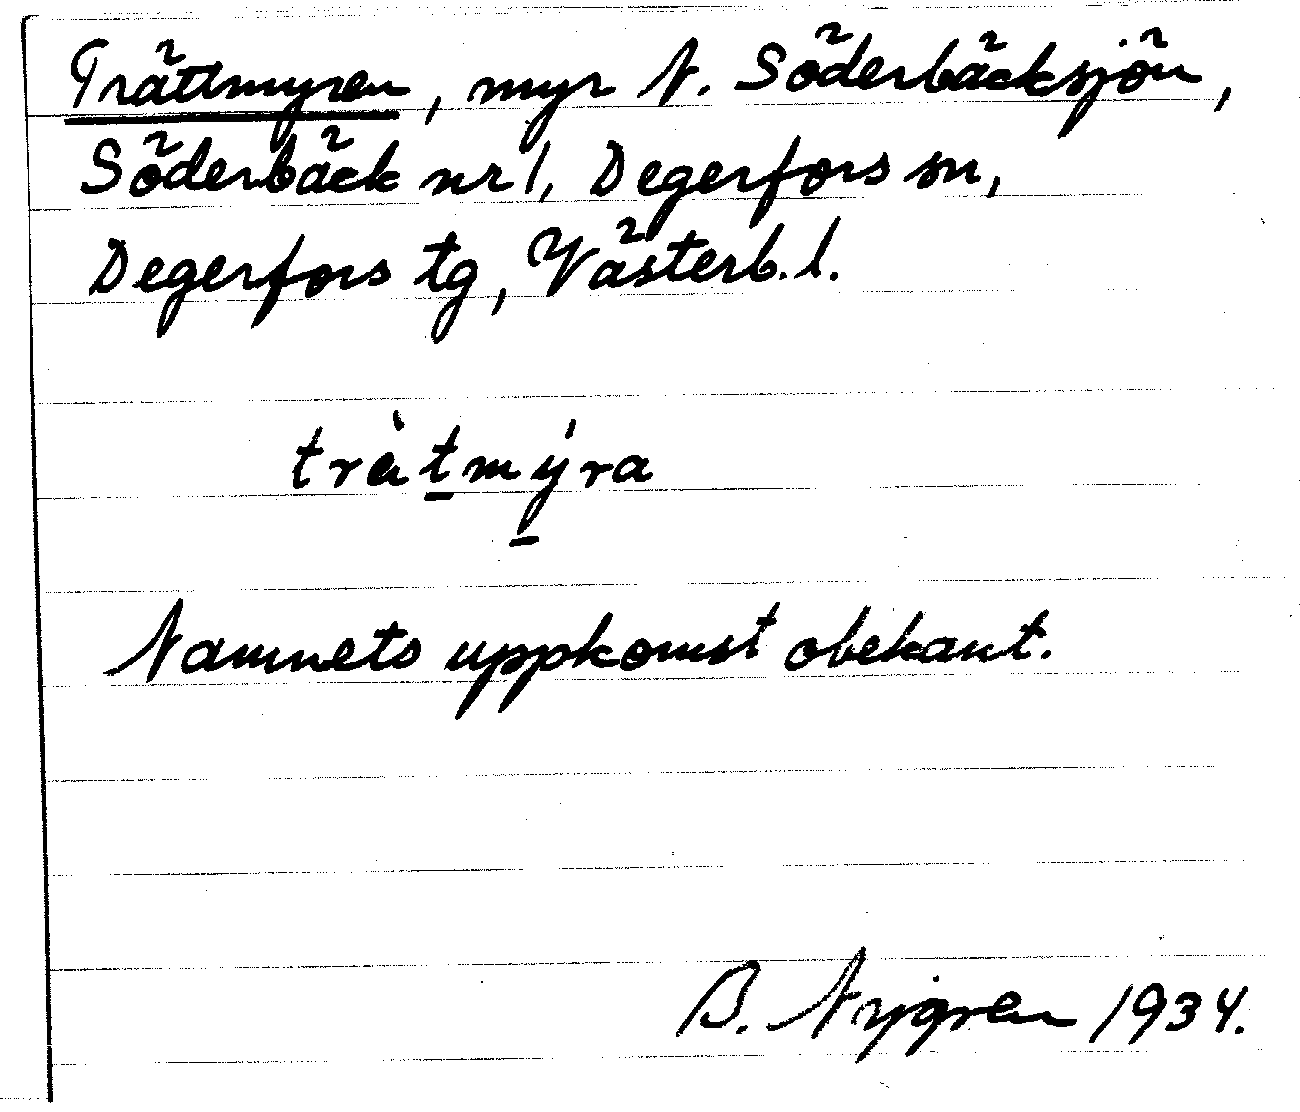 Trättmyren, myr N. Söderbäcksjön,
Söderbäck nr 1, Degerfors sn,
Degerfors tg, Västerb. l.
tràt̲mý̲ra
Namnets uppkomst obekant.
B. Nygren 1934.